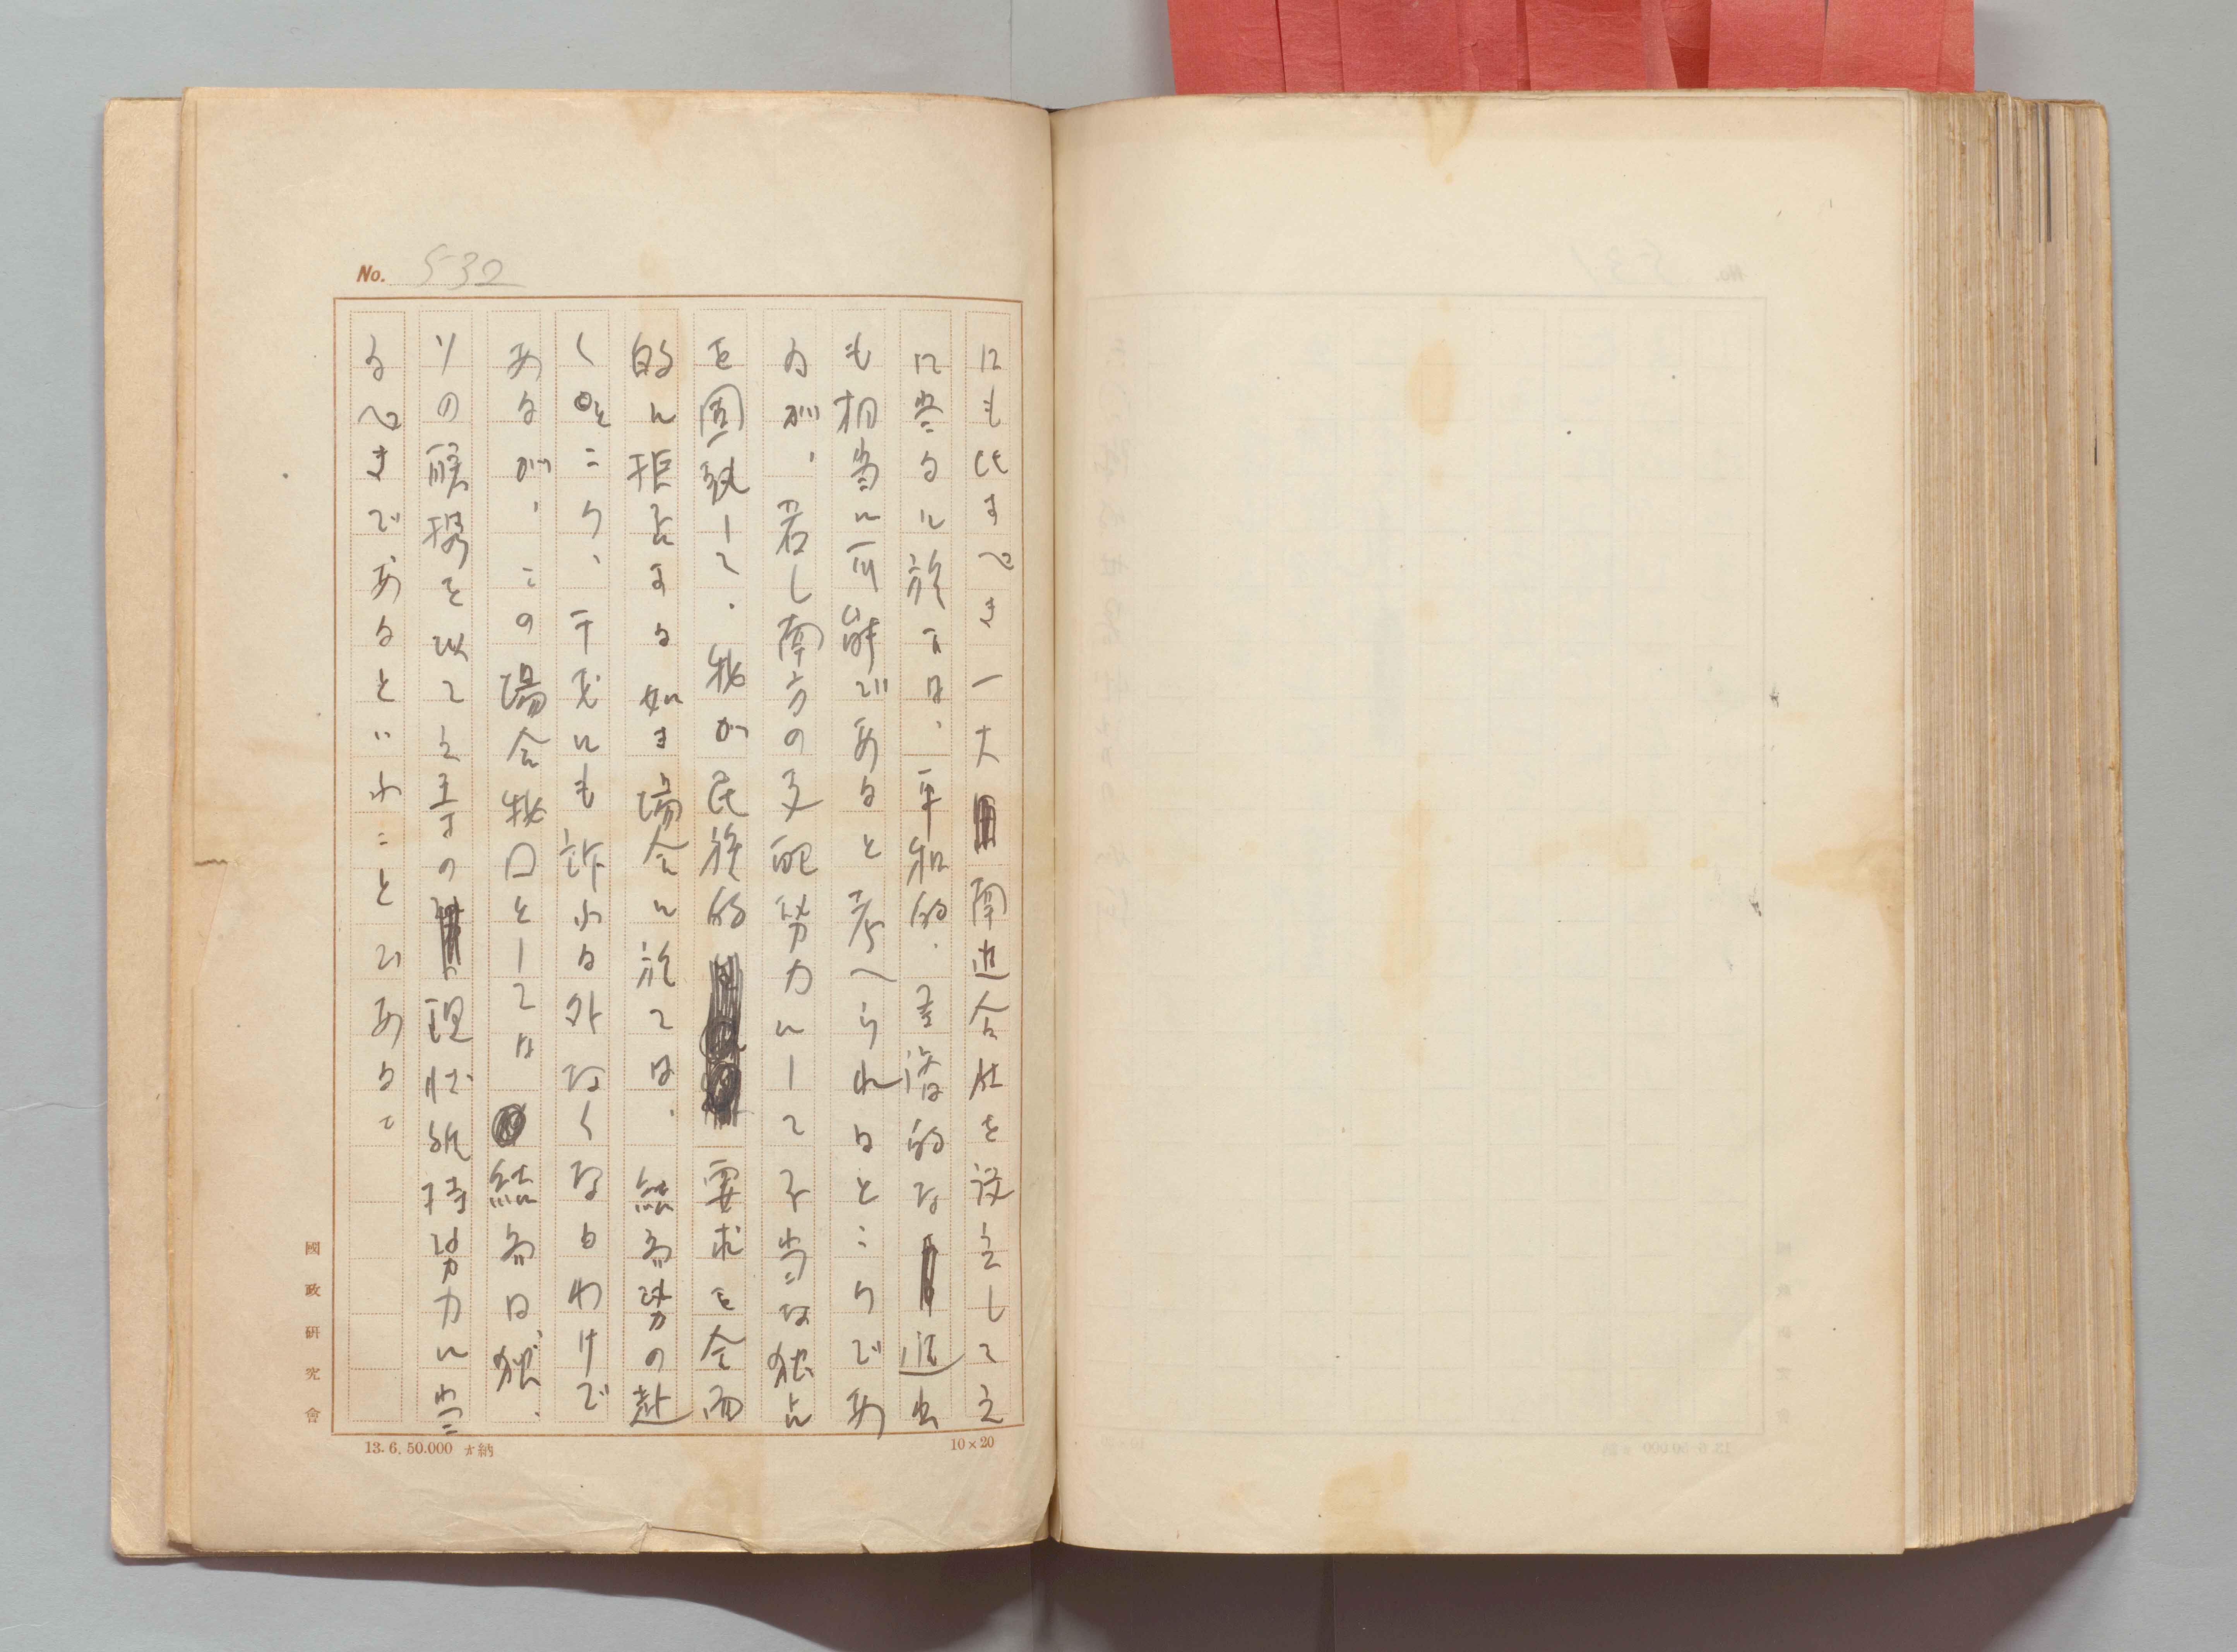 No. 532
にも比すべき一大南進会社を設立して之
に当るに於ては、平和的、経済的な進出
も相当に可能であると考へられるところであ
るが、若し南方の支配勢力にして不当な独占
を固執して、我が民族的要求を全面
的に拒否する如き場合に於ては、結局勢の赴
くところ、干戈にも訴ふる外なくなるわけで
あるが、この場合我国としては結局は独、
ソの聯携を以て之等の現状維持勢力に当
るべきであるといふことである。
國政研究會
13.6.50.000 納
10×20